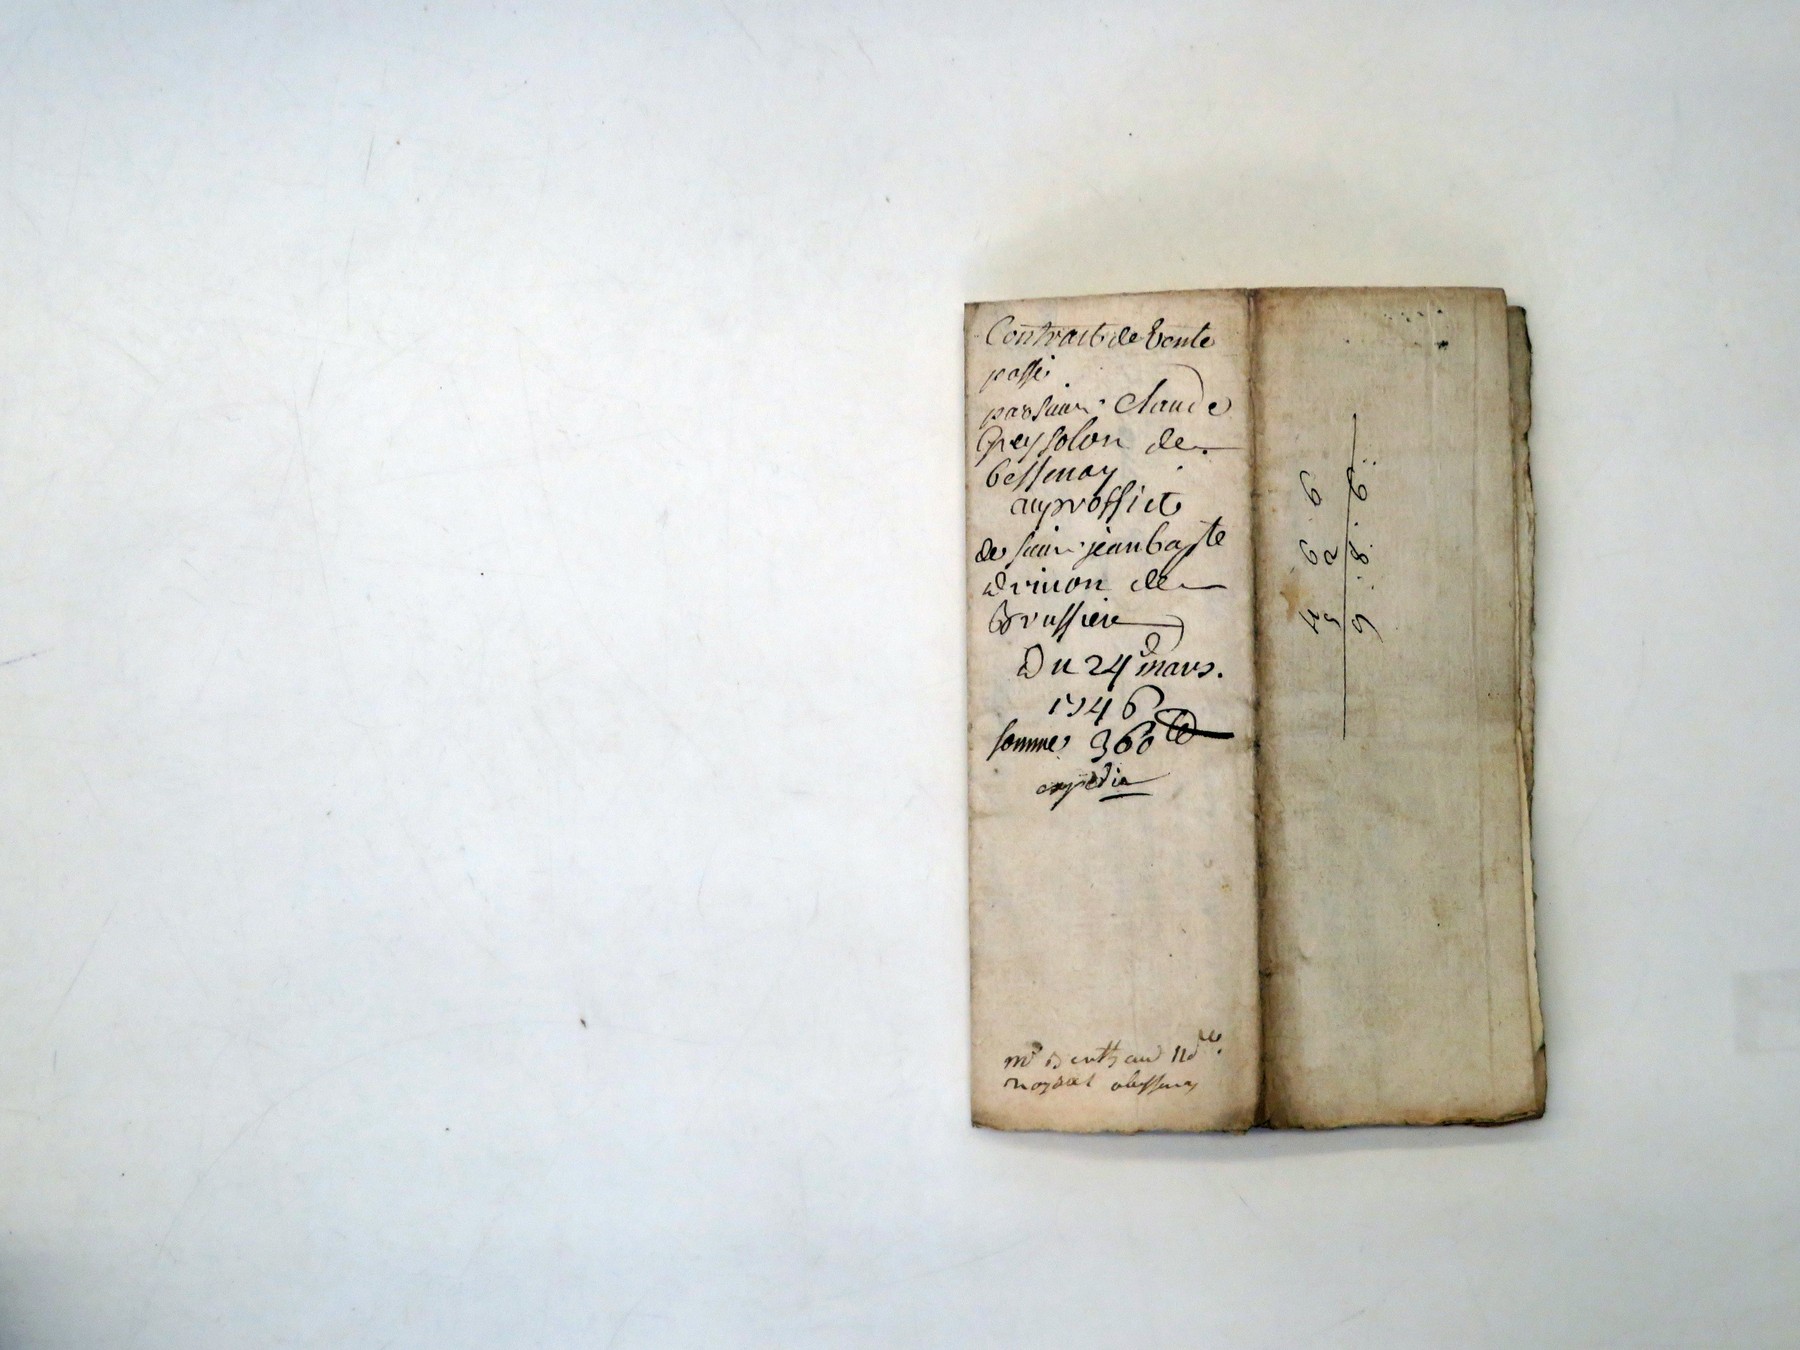 Contrait de Vente
passé
par sieur Claude
Greysolon de
bessenay
au proffict
de sieur jean bapte
Drivon de
Brussiere
Du 24e mars.
1746
somme 360 lt
expédié
mr Berthaud nore
royal a bessenay
6. 6
6 2
4 5
6. 8. 9